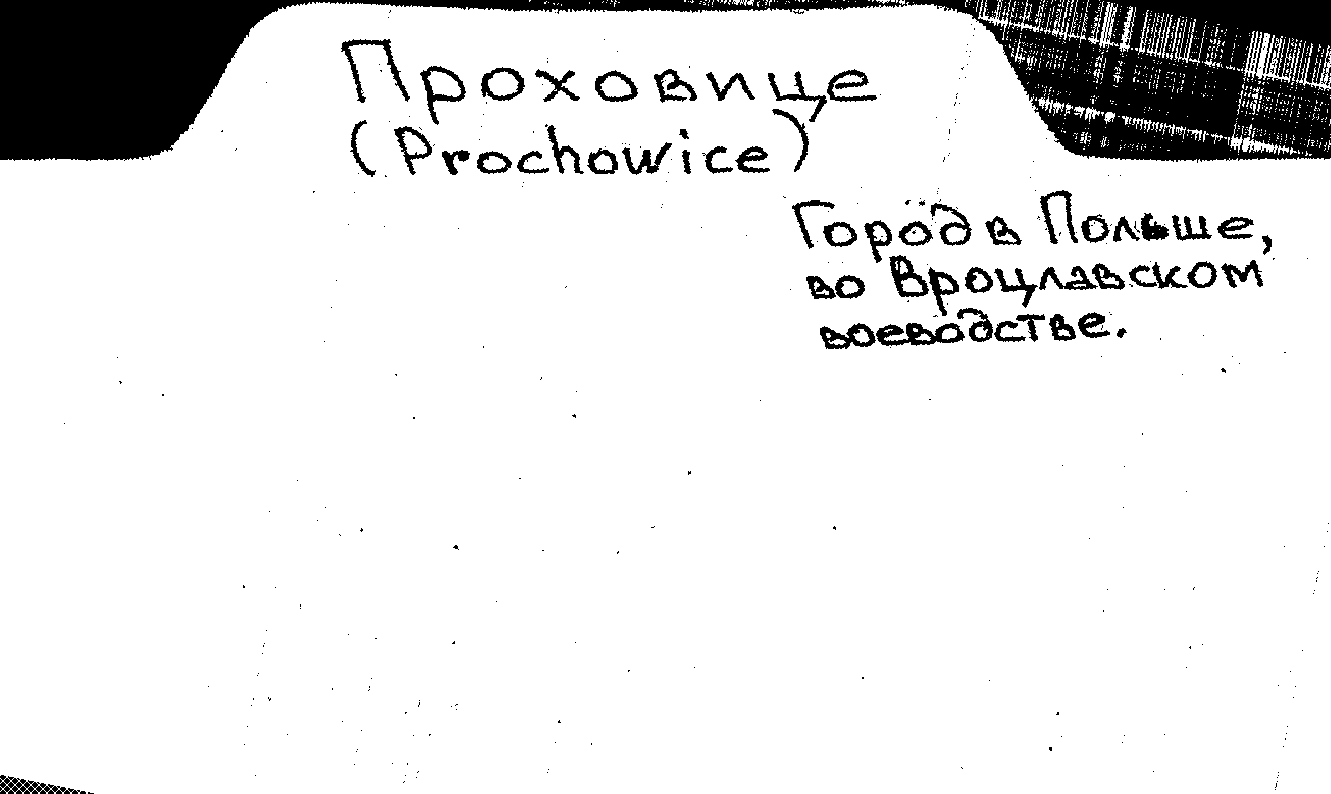 Проховице
(Prochowice)
Город в Польше,
во Вроцлавском
воеводстве.